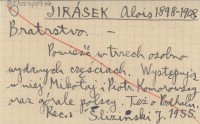 JIRÁSEK Alois 1898-1908
Bratrstvo. —
Powieść w trzech osobno
wydanych częściach. Występują
w niej Mikołaj i Piotr Komorowscy
oraz górale polscy. Też o Podhalu.
Rec.: Śliziński J. 1955.